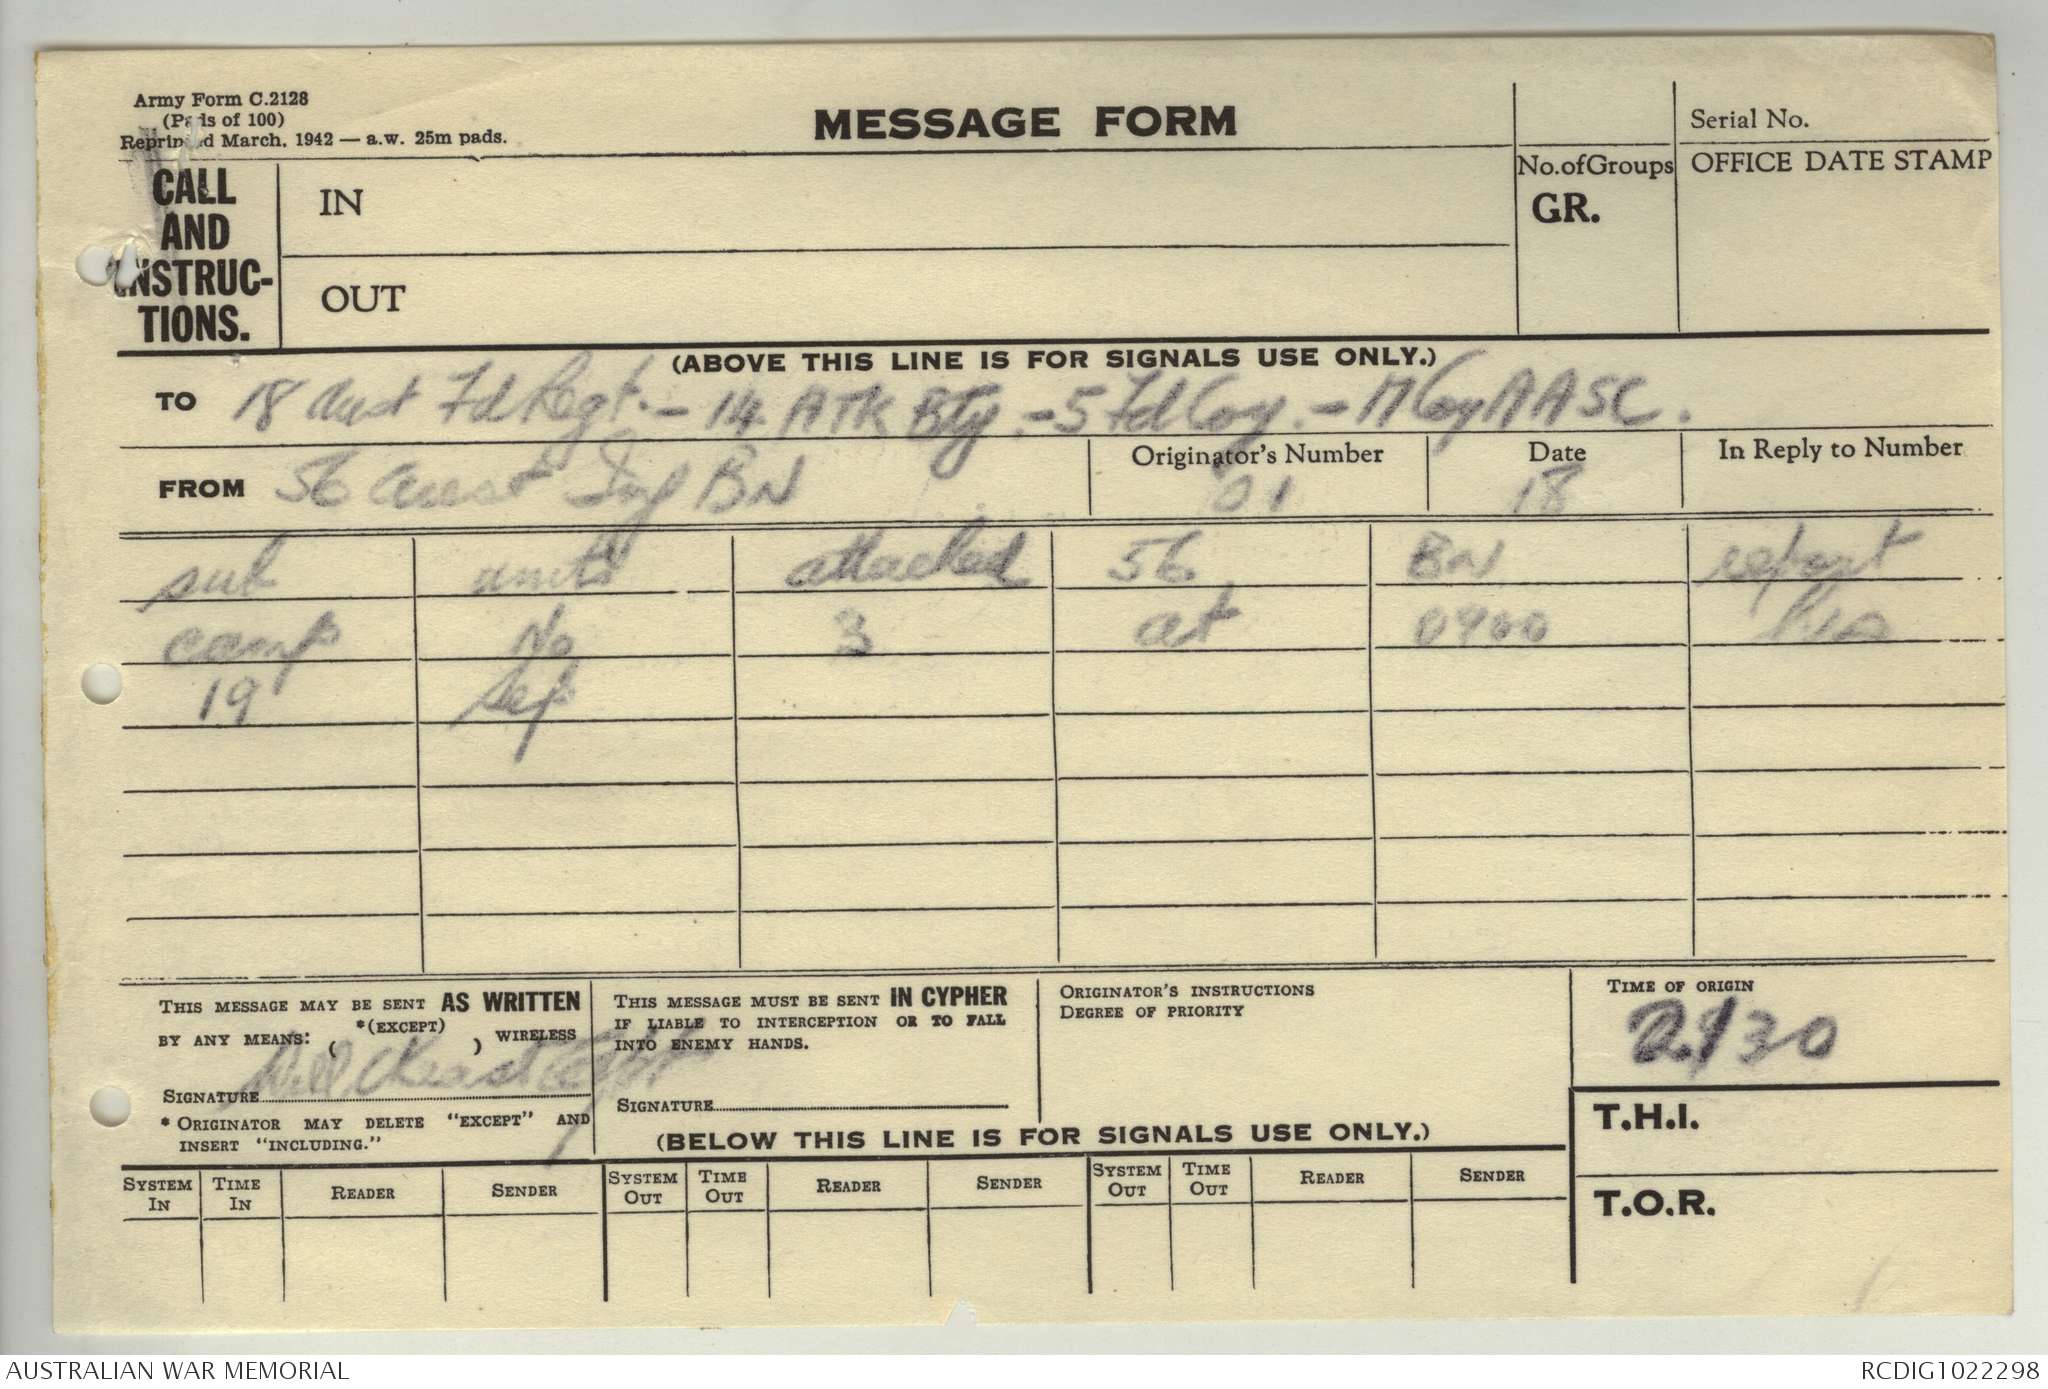 Army Form C.2128
(Pads of 100)
Reprinted March, 1942 — a.w. 25m pads.
MESSAGE FORM
Serial No.
CALL AND INSTRUC-TIONS.
IN
OUT
No. of Groups
GR.
OFFICE DATE STAMP
(ABOVE THIS LINE IS FOR SIGNALS USE ONLY.)
TO 18 Aust Fd Regt. - 14 ATK Bty. - 5 Fd Coy. - Coy AASC.
FROM 56 Aust Inf BN
Originator's Number 01
Date 18
In Reply to Number
sub units attached 56 BN report
camp No 3 at 0900 hrs
19 Sep
THIS MESSAGE MAY BE SENT AS WRITTEN BY ANY MEANS: *(EXCEPT) ( ) WIRELESS
SIGNATURE
* ORIGINATOR MAY DELETE "EXCEPT" AND INSERT "INCLUDING."
THIS MESSAGE MUST BE SENT IN CYPHER IF LIABLE TO INTERCEPTION OR TO FALL INTO ENEMY HANDS.
SIGNATURE
ORIGINATOR'S INSTRUCTIONS
DEGREE OF PRIORITY
TIME OF ORIGIN
2130
T.H.I.
T.O.R.
(BELOW THIS LINE IS FOR SIGNALS USE ONLY.)
SYSTEM IN TIME IN READER SENDER SYSTEM OUT TIME OUT READER SENDER SYSTEM OUT TIME OUT READER SENDER
AUSTRALIAN WAR MEMORIAL
RCDIG1022298